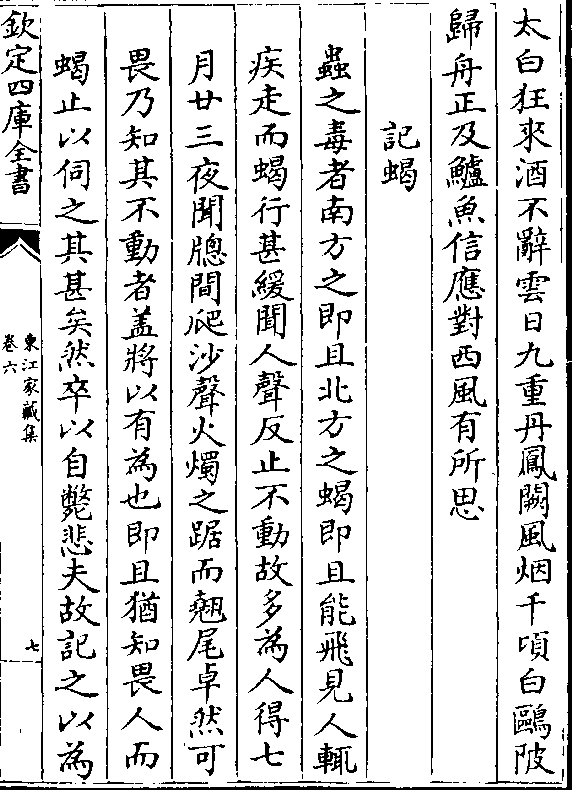 太白狂來酒不辭雲日九重丹鳳闕風烟千頃白鷗陂
歸舟正及鱸魚信應對西風有所思
記蝎
蟲之毒者南方之即且北方之蝎即且能飛見人輒
疾走而蝎行甚緩聞人聲反止不動故多為人得七
月廿三夜聞牕間爬沙聲火燭之踞而翹尾卓然可
畏乃知其不動者盖將以有為也即且猶知畏人而
蝎止以伺之其甚矣然卒以自斃悲夫故記之以為
欽定四庫全書
東江家藏集
卷六
七